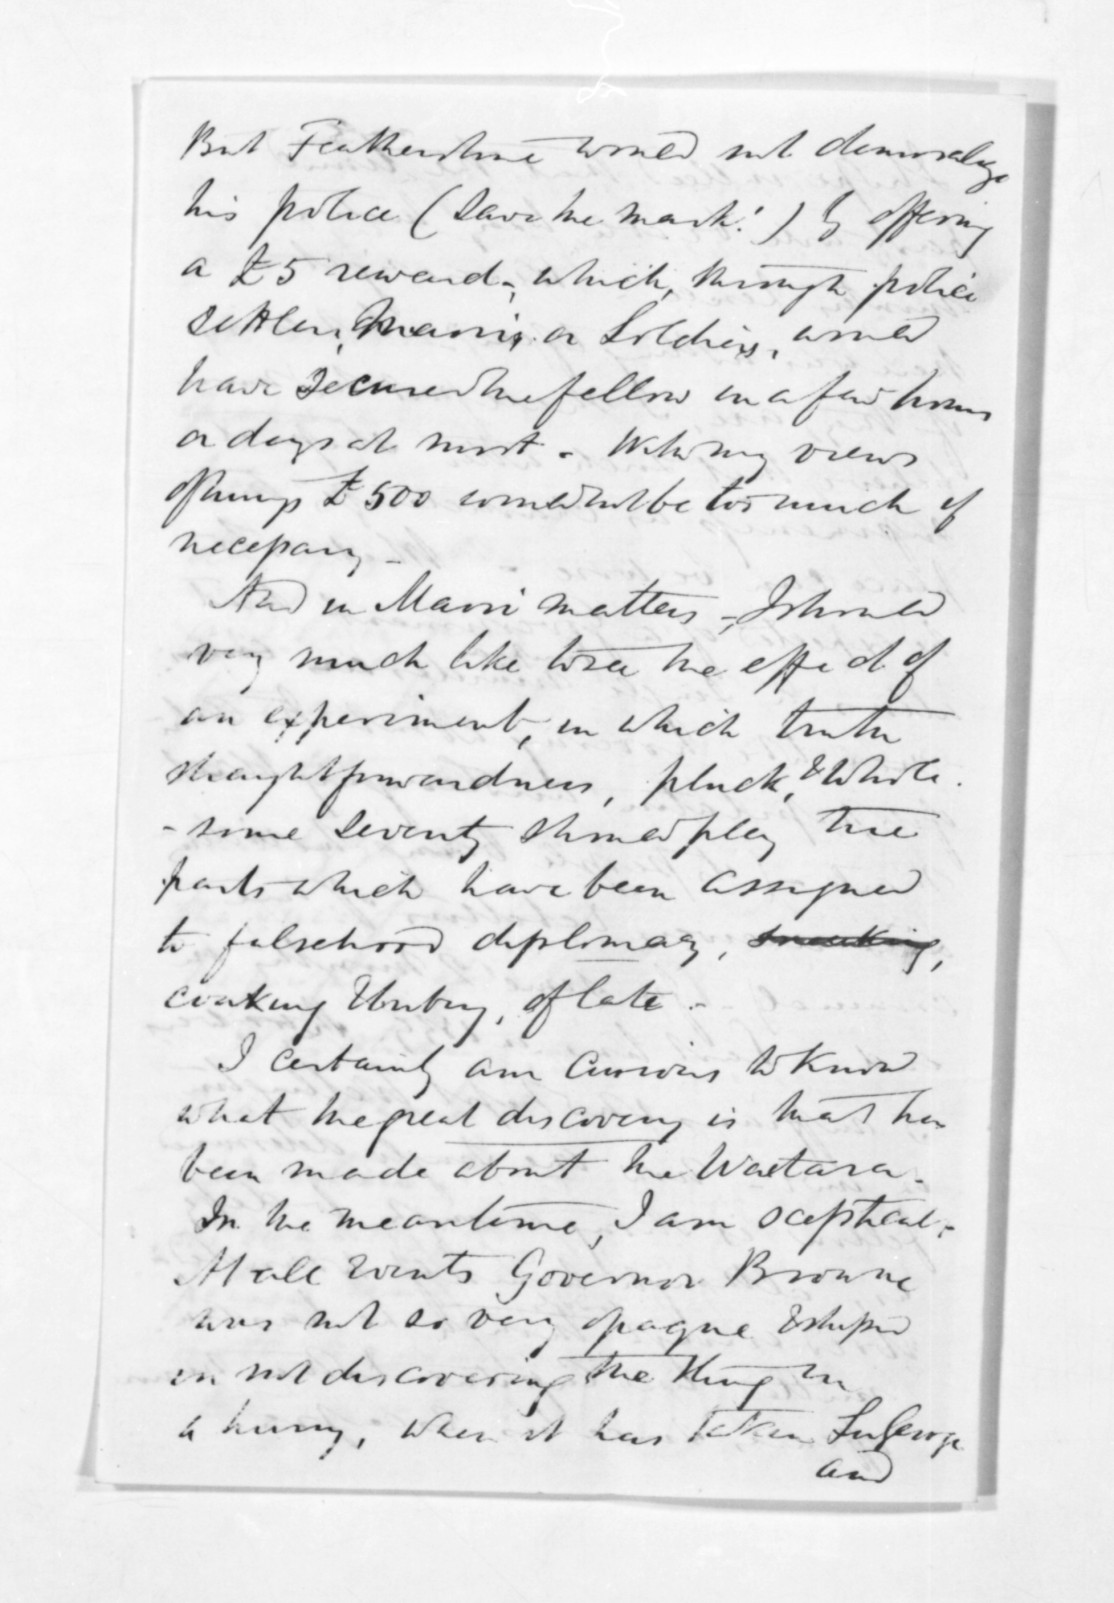 But Featherstone would not demoralize
his police (Save the mark!) by offering
a £5 reward, which, through police
settlers, Maoris, or Soldiers, would
have secured the fellow in a few hours
or days at most. With my views
of things £500 would not be too much if
necessary -
And in Maori matters, I should
very much like to see the effect of
an experiment, in which truth
straightforwardness, pluck, & whole
-some severity should play the
parts which have been assigned
to falsehood diplomacy, sneaking,
coaxing & bribery, of late. -
I certainly am curious to know
what the great discovery is that has
been made about the Waitara.
In the meantime, I am sceptical. -
At all events Governor Browne
was not so very opaque & stupid
in not discovering the thing in
a hurry, when it has taken Sir George
and